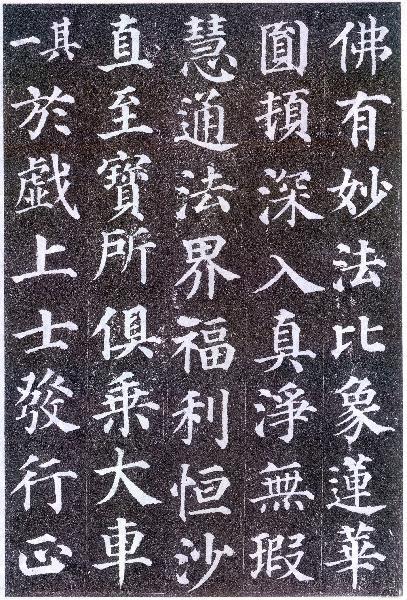 佛有妙法比象蓮華
圓頓深入真淨無瑕
慧通法界福利恒沙
直至寶所俱乘大車
其一於戲上士發行正